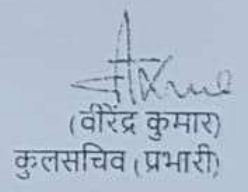 (वीरेंद्र कुमार)
कुलसचिव (प्रभारी)